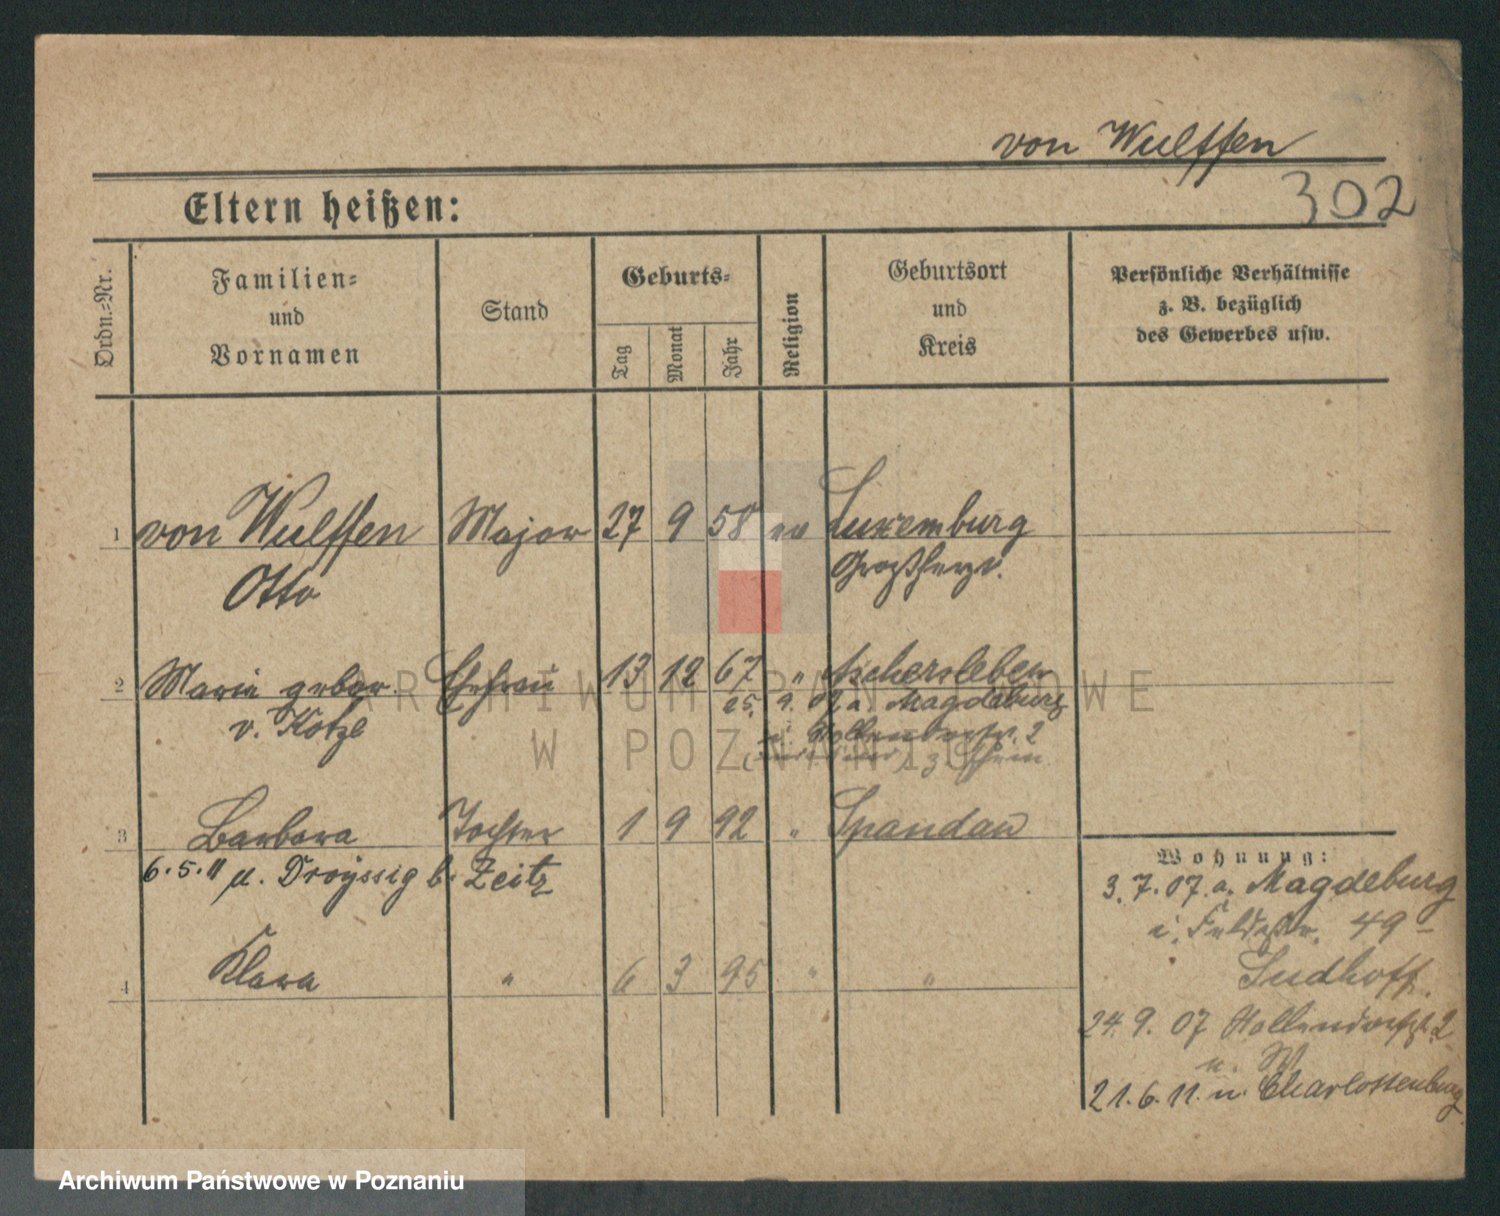 von Wulffen
302
Eltern heißen:
Ordn.-Nr.
Familien-
und
Vornamen
Stand
Geburts-
Tag
Monat
Jahr
Religion
Geburtsort
und
Kreis
Persönliche Verhältnisse
z. B. bezüglich
des Gewerbes usw.
1 von Wulffen Major 27 9 58 ev Luxemburg
Otto Großherzt.
2 Maria gebor. Ehefrau 13 12 67 " Aschersleben
v. Kotze 25. 9. 07 a. Magdeburg
2
3 Barbara Tochter 1 9 92 " Spandau
6.5.11 u. Droyssig b. Zeitz
4 Klara " 6 3 95 " "
Wohnung:
3.7.07. a. Magdeburg
49
Sudhoff.
24.9.07 2
21.6.11. n. Charlottenburg
ARCHIWUM PAŃSTWOWE
W POZNANIU
Archiwum Państwowe w Poznaniu